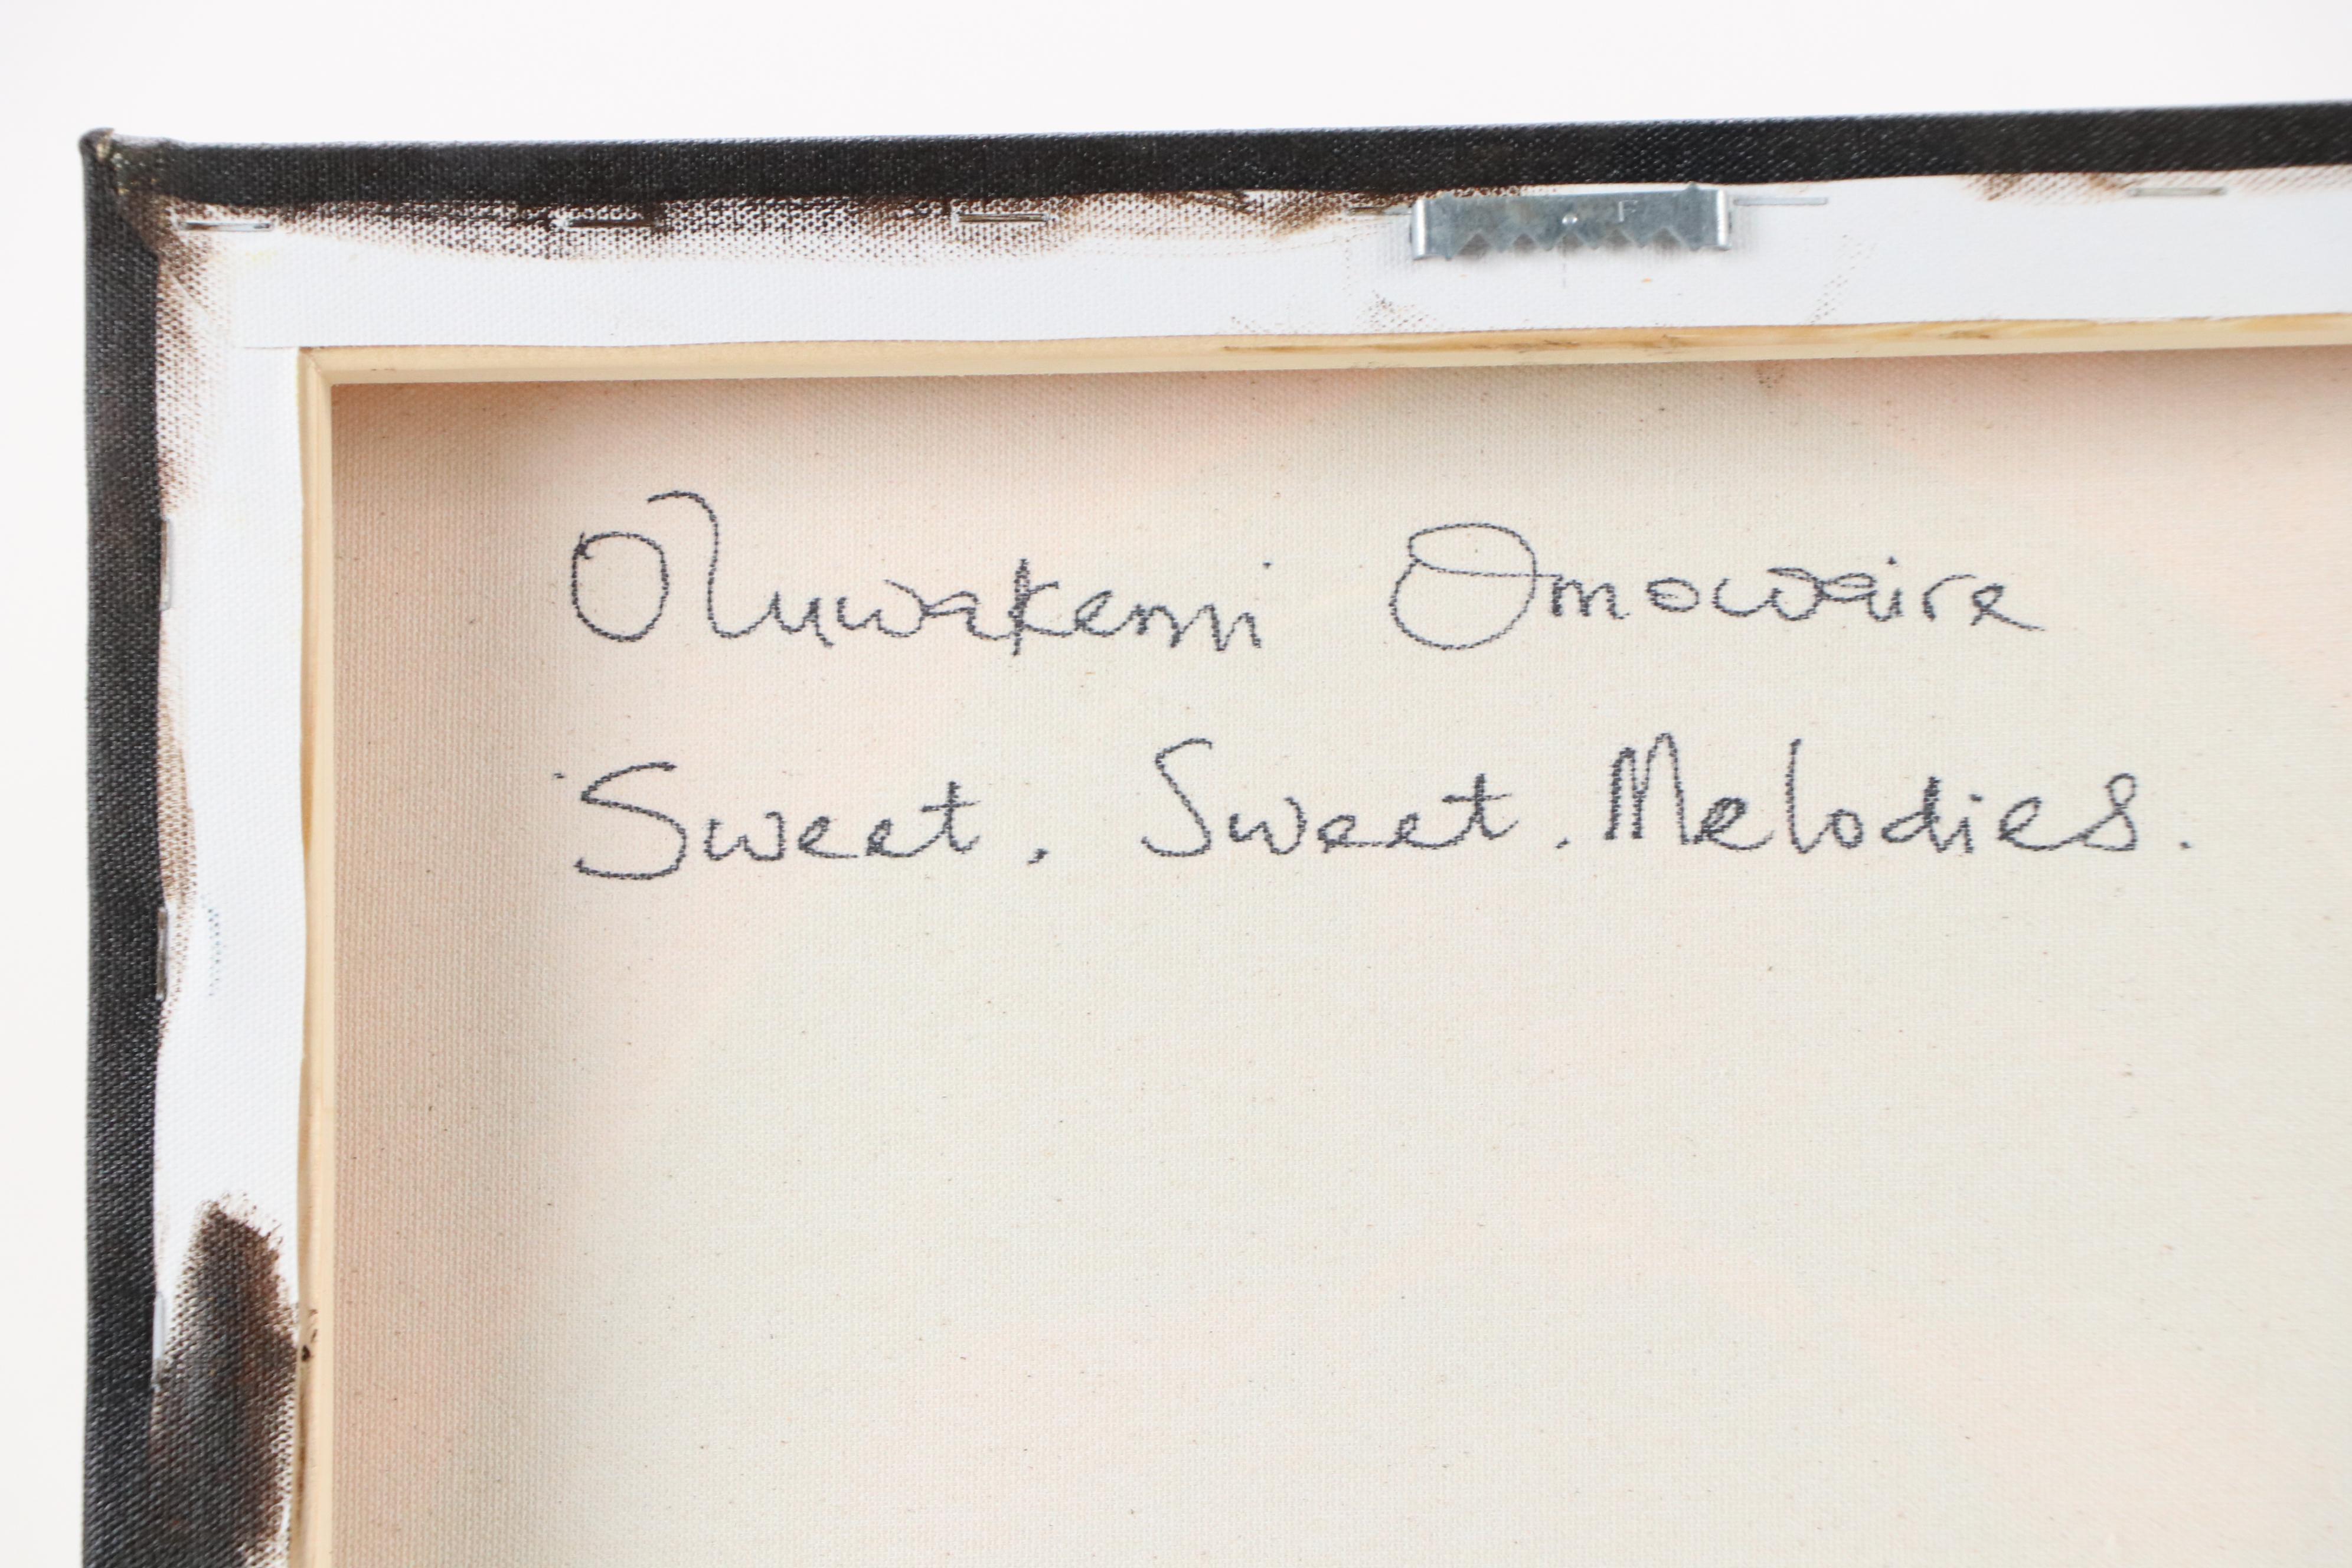 Oluwakemi Omowaire
Sweet. Sweet. Melodies.